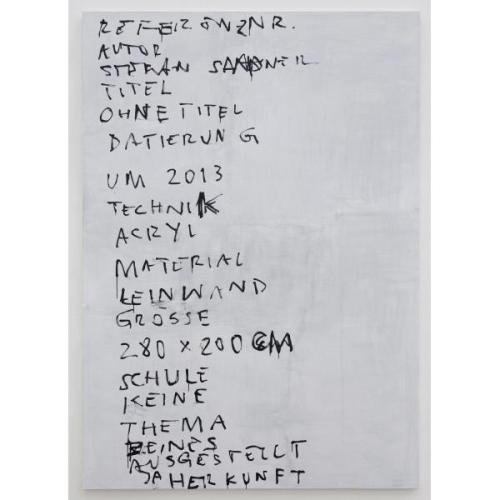 REFERENZNR.
AUTOR
STEFAN SANDNER
TITEL
OHNE TITEL
DATIERUNG
UM 2013
TECHNIK
ACRYL
MATERIAL
LEINWAND
GRÖSSE
280 x 200 CM
SCHULE
KEINE
THEMA
KEINES
AUSGESTELLT
JA HERKUNFT